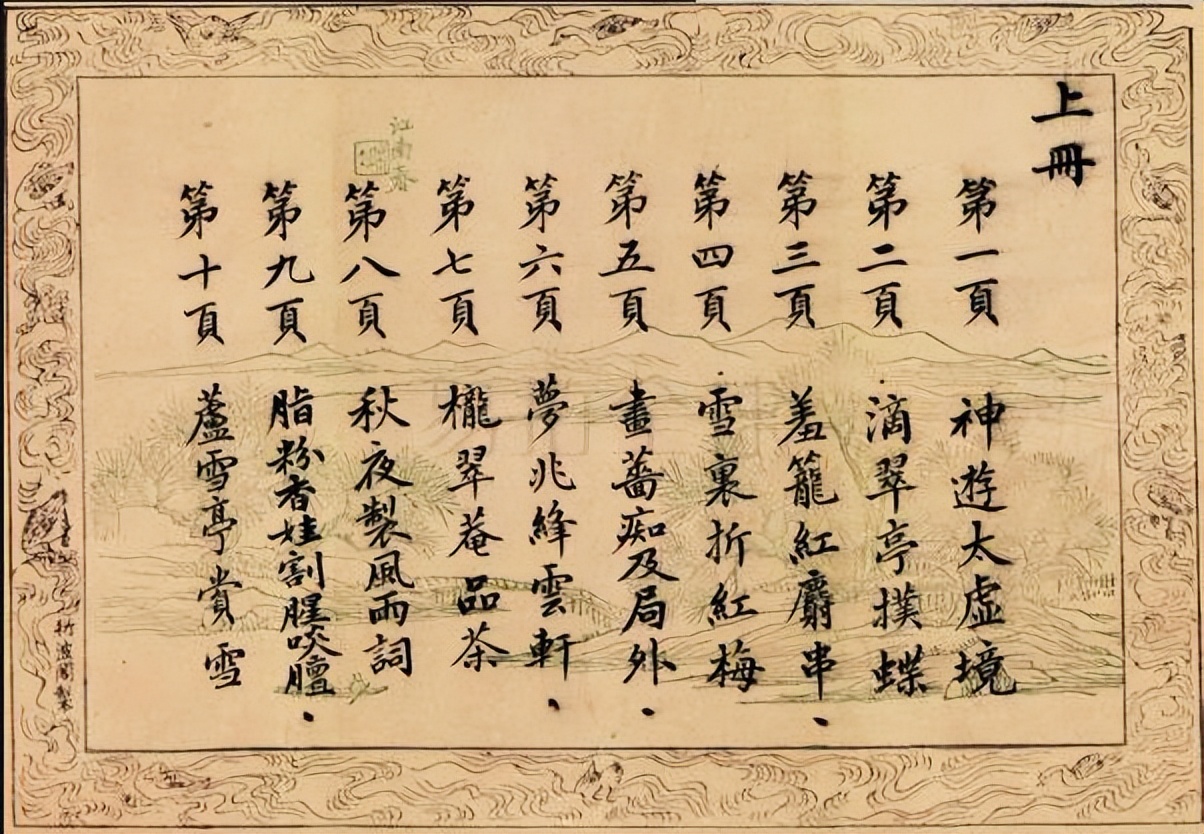 上冊
第一頁 神遊太虛境
第二頁 滴翠亭撲蝶
第三頁 羞籠紅麝串、
第四頁 雪裏折紅梅
第五頁 畫薔痴及局外、
第六頁 夢兆絳雲軒、
第七頁 櫳翠菴品茶
第八頁 秋夜製風雨詞
第九頁 脂粉香娃割腥啖膻、
第十頁 蘆雪亭賞雪
江南春